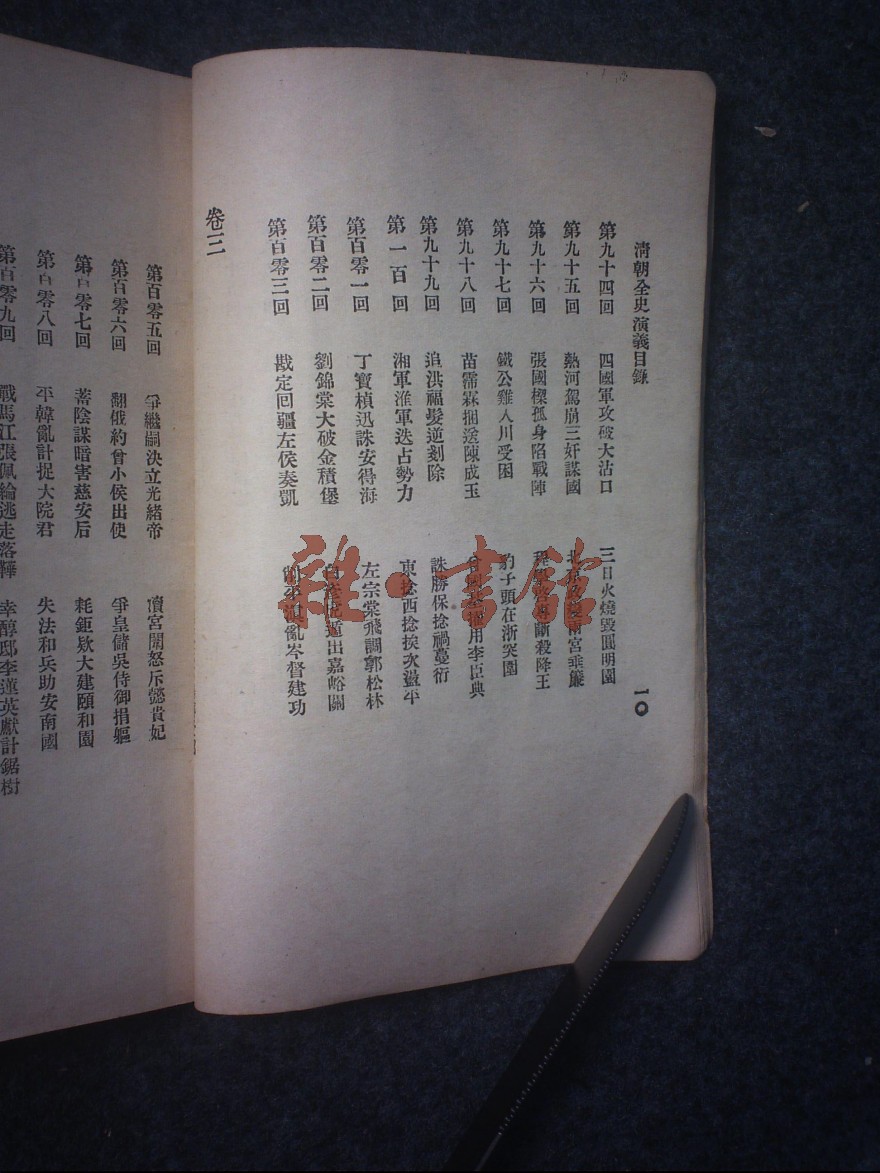 清朝全史演義目錄
一〇
第九十四回 四國軍攻破大沽口 三日火燒毀圓明園
第九十五回 熱河駕崩三奸謀國 宮垂簾
第九十六回 張國樑孤身陷戰陣 斷殺降王
第九十七回 鐵公雞入川受困 豹子頭在浙突圍
第九十八回 苗霈霖捆送陳成玉 用李臣典
第九十九回 追洪福髮逆剗除 誅勝保捻禍蔓衍
第一百回 湘軍淮軍迭占勢力 東捻西捻挨次盪平
第百零一回 丁寶楨迅誅安得海 左宗棠飛調郭松林
第百零二回 劉錦棠大破金積堡 遁出嘉峪關
第百零三回 戡定回疆左侯奏凱 亂岑督建功
卷三
第百零五回 爭繼嗣決立光緒帝 瀆宮闈怒斥懿貴妃
第百零六回 翻俄約曾小侯出使 爭皇儲吳侍御捐軀
第百零七回 蓄陰謀暗害慈安后 耗鉅欵大建頤和園
第百零八回 平韓亂計捉大院君 失法和兵助安南國
第百零九回 戰馬江張佩綸逃走落鞾 幸醇邸李蓮英獻計鋸樹
雜·書館